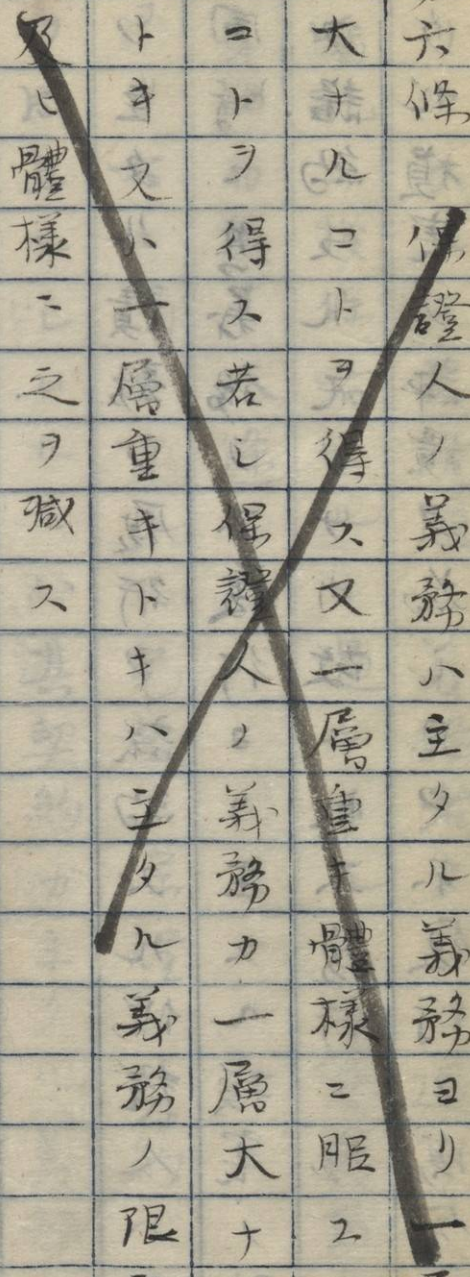 六條保證人ノ義務ハ主タル義務ヨリ一
大ナルコトヲ得ス又一層重キ體樣ニ服ス
コトヲ得ス若シ保證人ノ義務カ一層大ナ
トキ又ハ一層重キトキハ主タル義務ノ限
及ヒ體樣ニ之ヲ減ス